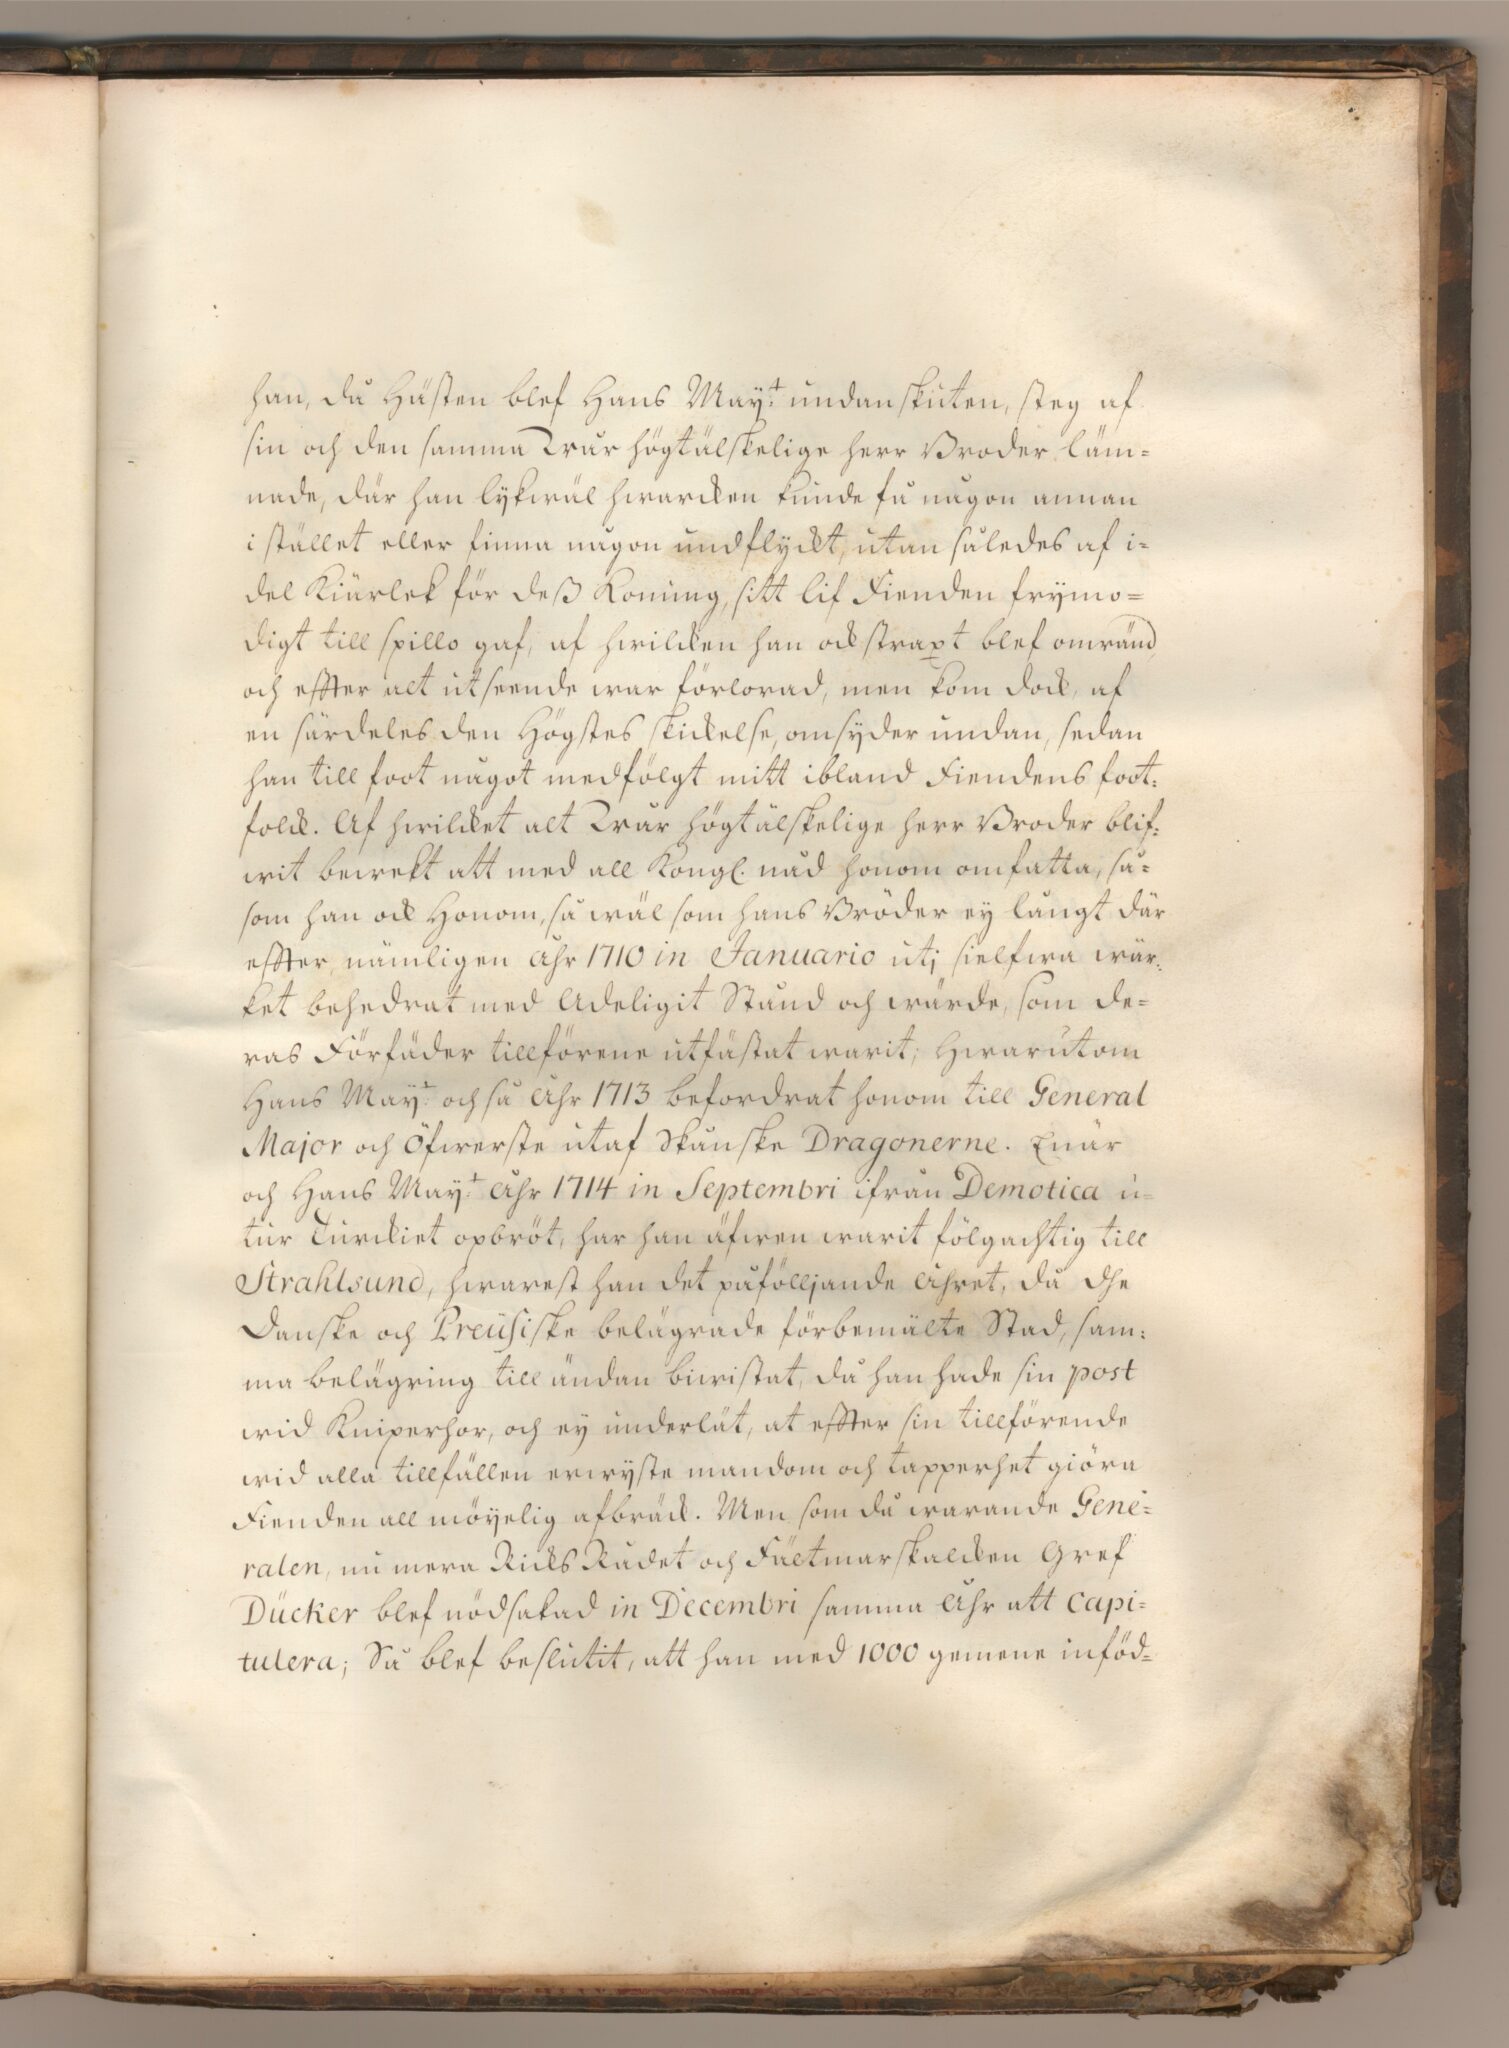 han, då Hästen blef Hans May:t undanskuten, steg af
sin och den samma Wår högtälskelige herr Broder läm=
nade, där han lykwäl hwarcken kunde få någon annan
i stället eller finna någon undflyckt, utan således af i=
del Kiärlek för deß Konung, sitt lif Fienden frymo=
digt till spillo gaf, af hwilcken han ock strapt blef omränd,
och effter alt utseende war förlorad, men kom dock, af
en särdeles den Högstes skickelse, omsyder undan, sedan
han till foot något medfölgt mitt ibland Fiendens foot=
folck. Af hwilcket alt Wår högtälskelige herr Broder blif=
wit bewekt att med all Kongl. nåd honom omfatta, så=
som han ock Honom, så wäl som hans Bröder ey långt där
effter, nämligen Åhr 1710 in Januario utj sielfwa wär=
ket behedrat med Adeligit Stånd och wärde, som de=
ras Förfäder tillförene utfästat warit; Hwarutom
Hans May:t också Åhr 1713 befordrat honom till General
Major och Öfwerste utaf Skånske Dragonerne. Enär
och Hans May:t Åhr 1714 in Septembri ifrån Demotica u=
tur Turckiet opbröt, har han äfwen warit fölgachtig till
Strahlsund, hwarest han det påfölljande Åhret, då Dhe
Danske och Preüsiske belägrade förbemälte Stad, sam=
ma belägring till ändan biwistat, då han hade sin post
wid Kniperhor, och ey underlät, at effter sin tillförende
wid alla tillfällen erwyste mandom och tapperhet giöra
Fienden all möyelig afbräck. Men som då warande Gene=
ralen, nu mera Ricks Rådet och Fältmarskalcken Gref
Dücker blef nödsakad in Decembri samma Åhr att capi=
tulera; Så blef beslutit, att han med 1000 gemene inföd=